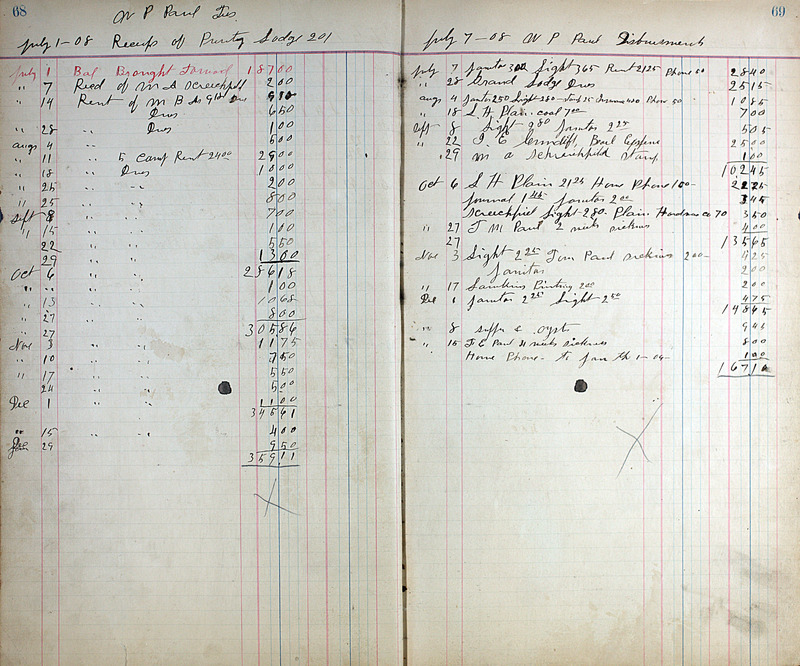 68
W P Paul Tres
July 1-08 Receips of Purity Lodge 201
July 1 Bal Brought Forward 187 00
" 7 Recd of M A Screechfield 2 00
" 14 Rent of M B A Dues 9 10
Dues 6 50
" 28 " Dues 1 00
Augs 4 " 5 00
" 11 " 5 Camp Rent 24 00 29 00
" 18 " Dues 10 00
" 25 " " 2 00
" 25 " " 8 00
Sept 8 " " 7 00
" 15 " " 1 00
22 " " 5 50
29 " " 13 00
Oct 6 " " 286 18
" " " " 1 00
" 13 " " 10 68
" 27 " " 8 00
" 27 " " 305 86
Nov 3 " " 11 75
" 10 " " 7 50
" 17 " " 5 50
" 24 " " 5 00
Dec 1 " " 11 00
345 61
" 15 " " 4 00
29 9 50
359 11
69
July 7-08 W P Paul Disbursments
July 7 Janitor 300 Light 365 Rent 2125 Phone 50 28 40
" 28 Grand Lodge Dues 25 15
Augs 4 Janitor 250 Light 280 Phone 50 10 85
" 18 L H Plain coal 700 7 00
Sept 8 Light 280 Janitor 225 5 05
" 22 Expense 25 00
" 29 M A Screechfield 1 00
102 45
Oct 6 L H Plain 2125 Home Phone 100- 22 25
Journal 145 Janitor 200 3 45
Screechfiel Light 280 Plain Hardware Co 70 3 50
" 27 J M Paul 2 weeks sickness 4 00
27 135 65
Nov 3 Light 225 Jim Paul sickness 200- 4 25
Janitor 2 00
" 17 Printing 200 2 00
Dec 1 Janitor 225 Light 250 4 75
148 65
" 8 supper & oyster 9 45
" 15 J E Paul 4 weeks sickness 8 00
Home Phone - to Jan th 1-09- 1 00
167 10